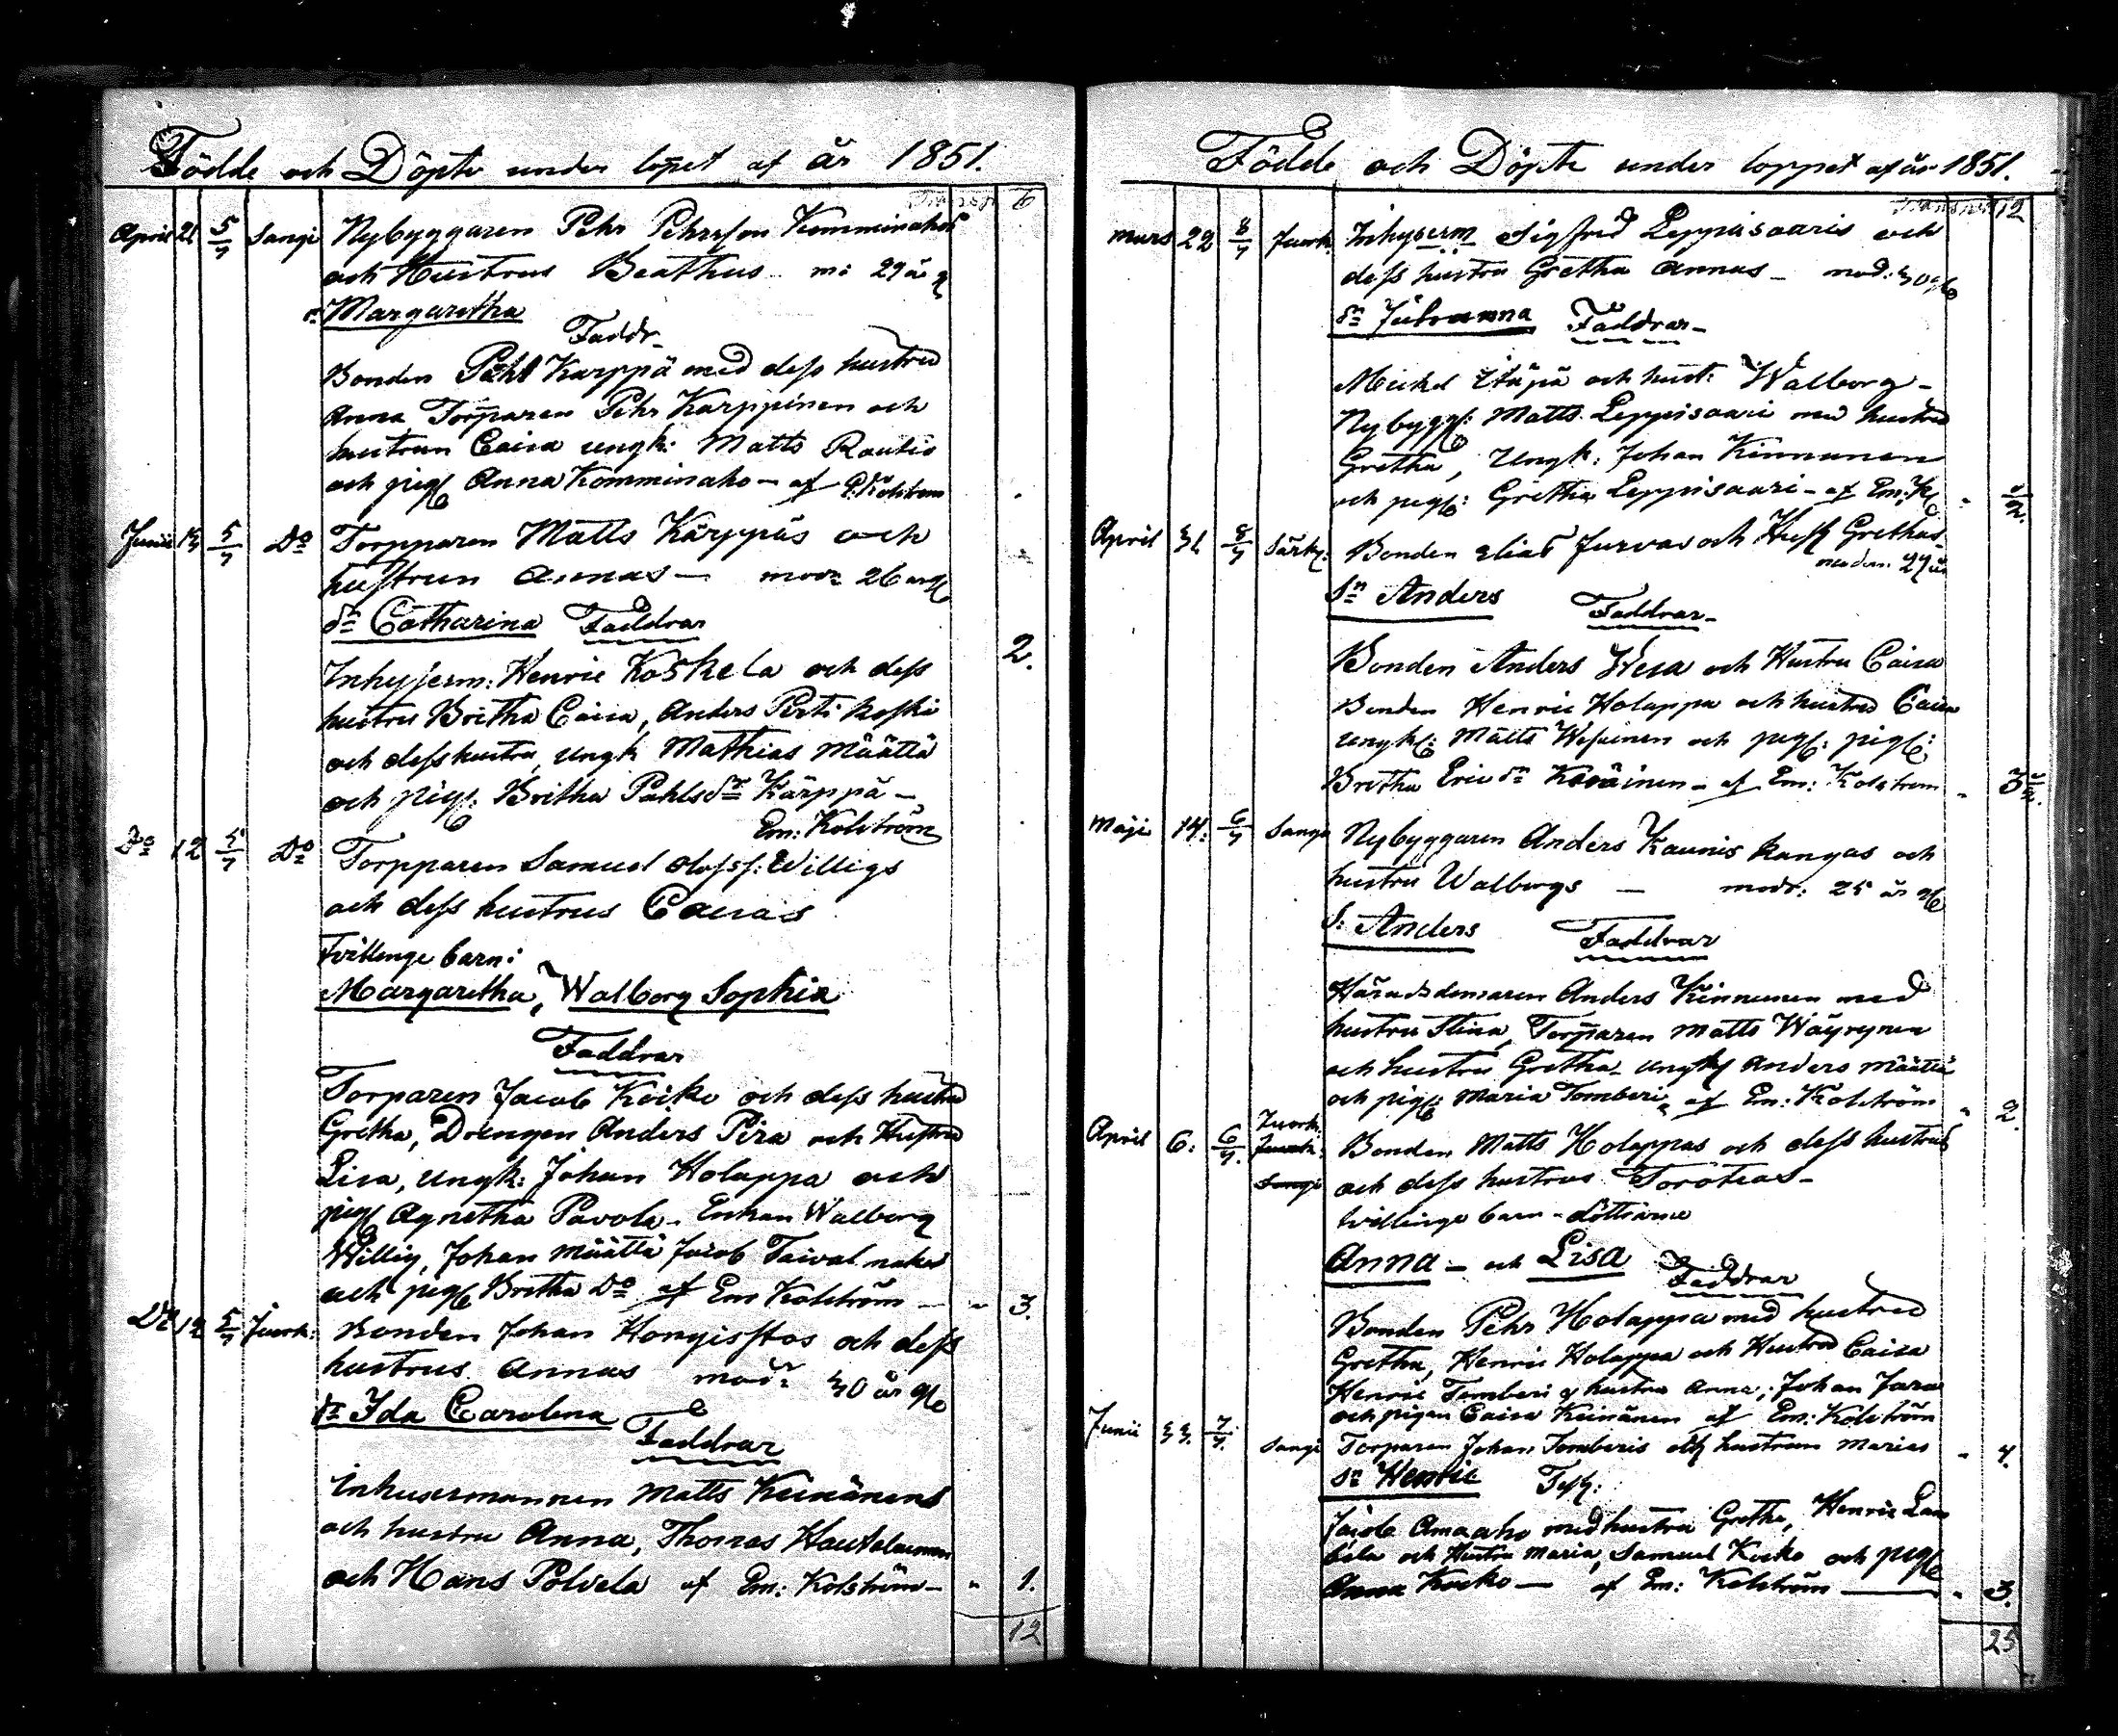 Födde och Döpte under lopet af år 1851.
Transp. 6
April 21 5/7 Sangi Nybyggaren Pehr Pehrsson Komminahos
och Hustrus Beathus m: 29 år
Margaretha
Faddr
Bonden Pehr Karppä med dess hustru
Anna Torparen Pehr Karppinen och
hustrun Caisa ungk: Matts Rautio
och pig Anna Komminaho – af E. Kolström
Junii 5/7 Do Torpparen Matts Kärppäs och
hustrun Annas – modr 26 år
dr Catharina Faddrar
2.
Inhysesm: Henric Koskela och dess
hustru Britha Caisa, Anders Pertikoski
och dess hustru, ungk Mathias Määttä
och pig: Britha Pahlsdr Kärppä –
Em: Kolström
Do 12 5/7 Do Torpparen Samuel Olofss: Willigs
och dess hustrus Caisas
Tvillinge barn:
Margaretha, Walborg Sophia
Faddrar
Torparen Jacob Koiko och dess hustru
Gretha, Drengen Anders Pira och Hustru
Lisa, ungk: Johan Holappa och
pig Agnetha Pavola – Enkan Walborg
Willig, Johan Määttä Jacob Taival
och pig Britha Do af Em Kolström – 3.
Do 5/7 Juork: Bonden Johan Hongisstos och dess
hustrus Annas modr 30 år
dr Ida Carolina
Faddrar
Inhusesmannen Matts Keinänens
och hustru Anna, Thomas Hautalainen
och Hans Polvela af Em: Kolström – 1.
12
Födde och Döpte under loppet af år 1851.
Transport 12
Mars 22 8/7 Juork. Inhysesm Sigfrid Leppisaaris och
dess hustru Gretha Annas – mod: 30
dr Johanna Faddrar –
Mickel Itäpä och hust: Walborg –
Nybygg: Matts Leppisaari med hustru
Gretha, Ungk: Johan Kinnunen
och pig: Gretha Leppisaari – af Em: K
April 8/7 Särk: Bonden Elias Jurvas och Hust Grethas
modern 29 år
sn Anders Faddrar –
Bonden Anders Wesa och Hustru Caisa
Bonden Henric Holappa och hustru Caisa
ungk: Matts Wesainen och pig: pig:
Britha Ericsdr – af Em: Kolström
Maji 14. 6/7 Sangi Nybyggaren Anders Kauniskangas och
hustru Walborgs – modr: 25 år
s: Anders Faddrar
Häradsdomaren Anders Kinnunen med
hustru Stina, Torparen Matts Wäyrynen
och hustru Gretha – ungk Anders Määttä
och pig: Maria Tomberi – af Em: Kolström 2.
Juork.
April 6. 6/7 Bonden Matts Holappas och dess hustrus
Sangi och dess hustrus Toroteas –
tvillinge barn – döttrarne
Anna – och Lisa Faddrar
Bonden Pehr Holappa med hustru
Gretha, Henric Holappa och Hustru Caisa
Henric Tomberi & hustru Anna, Johan Jurva
och pigan Caisa Keinänen af Em: Kolström
Junii 7/7. Sangi Torparen Johan Tomberis och hustrun Marias – 4.
sn Henric
Jacob Amaaho med hustru Gretha, Henric
och Hustru Maria, Samuel Koiko och pig
Anna Koiko – af Em: Kolström – 3.
25